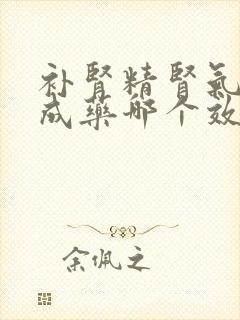 补肾精肾氣
成藥哪个效
余佩之